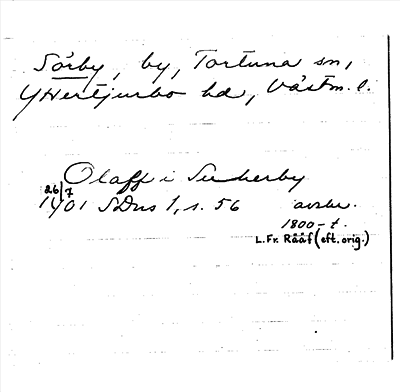 Sörby, by, Tortuna sn,
Yttertjurbo hd, Västm. l.
Olaff i Sudherby
26/7
1401 SDns 1, s. 56 avskr.
1800-t.
L. Fr. Rååf (eft. orig.)